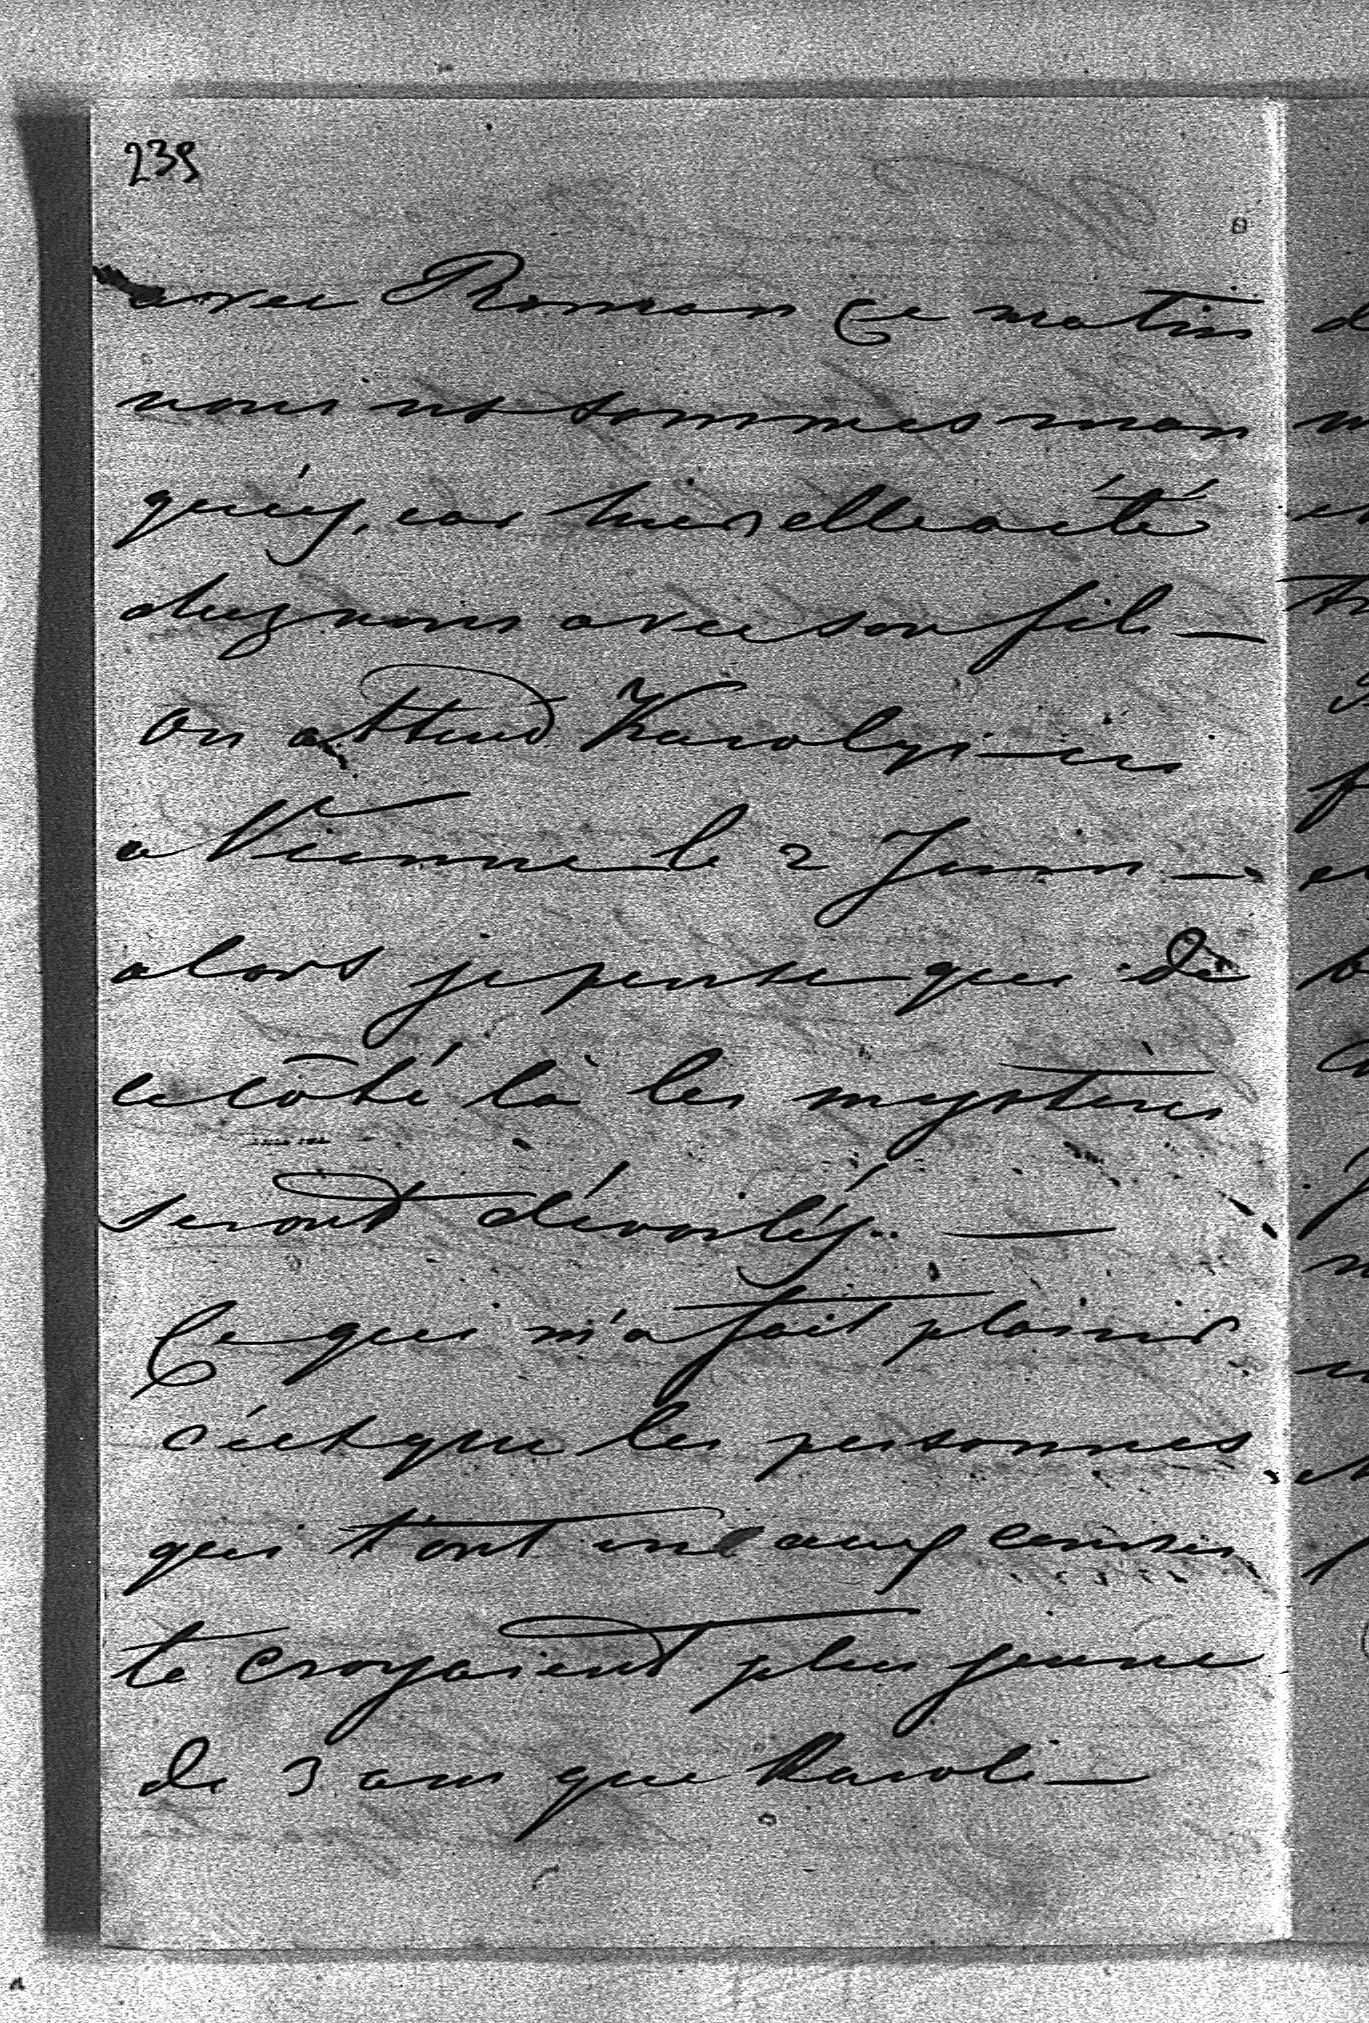 239
avec Roman Ce matin
nous ns sommes man
quéés, car hier elle a été
chez nous avec son fils —
On attend Karolyi – ici
a Vienne le 2 Juin —
alors je pense que de
ce côté là les mystères
seront dévoilés.. —
Ce qui m'a fait plaisir
c'est que les personnes
qui t'ont vue aux courses
te croyaient plus jeune
de 3 ans que Karoli —